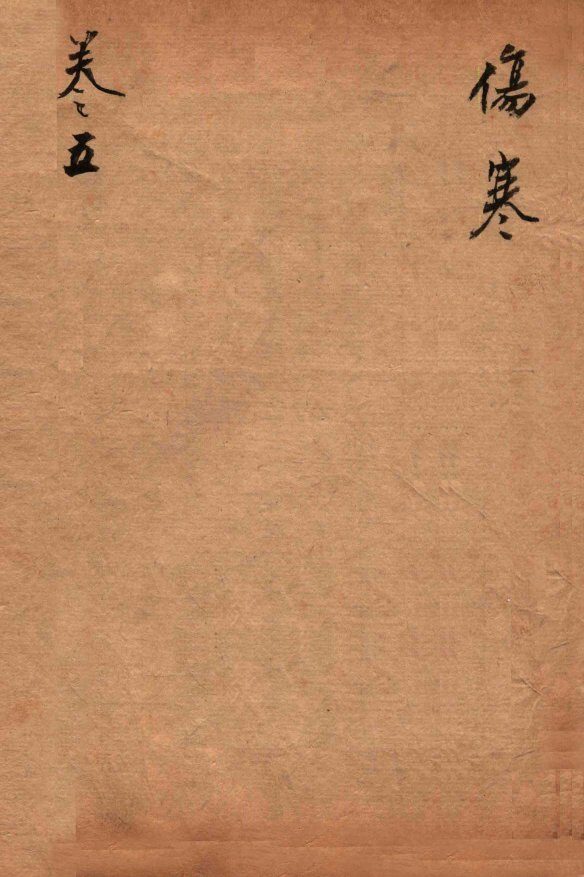 傷寒
卷五